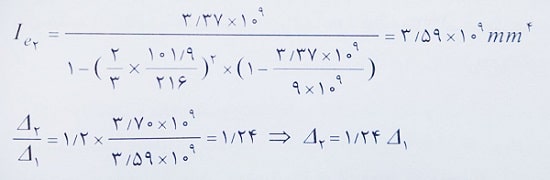 I_e۲ = ۳/۳۷×۱۰^۹ / (۱−(۲/۳ × ۱۰۱/۹ / ۲۱۶)^۲ ×(۱− ۳/۳۷×۱۰^۹ / ۹×۱۰^۹)) = ۳/۵۹×۱۰^۹ mm^۴
Δ_۲/Δ_۱ = ۱/۲× ۳/۷۰×۱۰^۹ / ۳/۵۹×۱۰^۹ = ۱/۲۴ ⇒ Δ_۲ = ۱/۲۴ Δ_۱